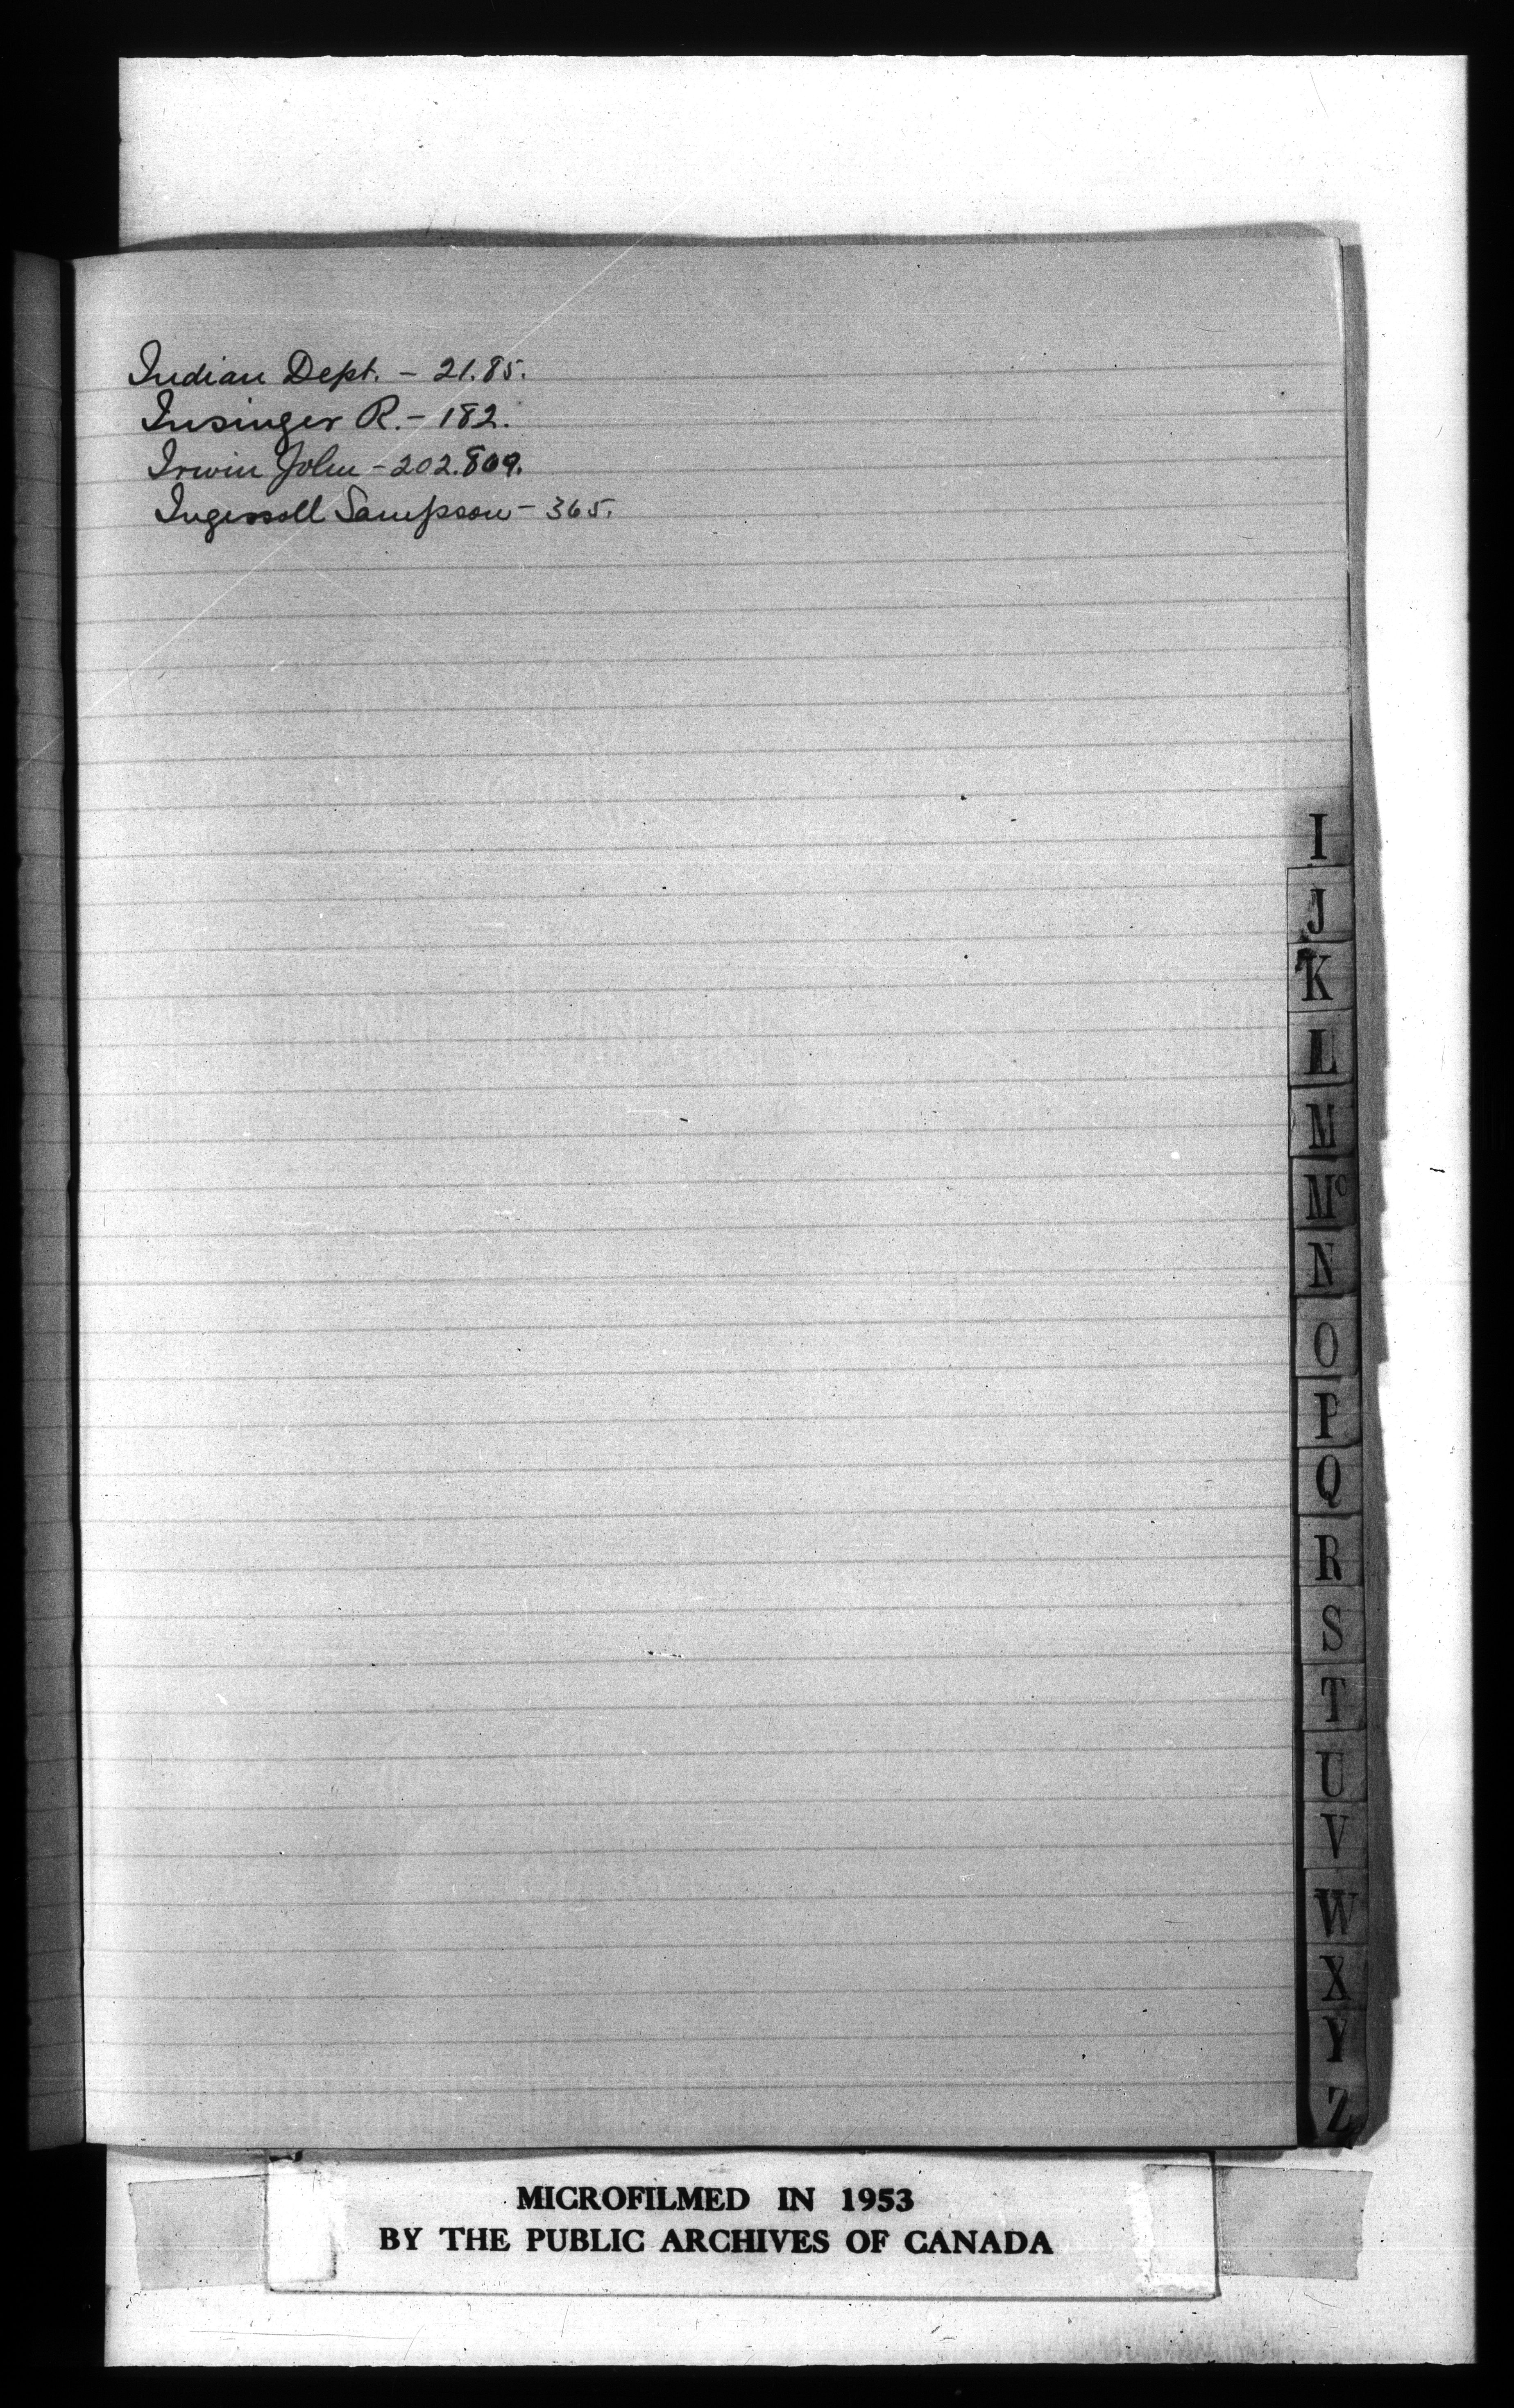 Indian Dept. - 21.85.
Insinger R. - 182.
Irwin John - 202.809.
Ingersoll Sampson - 365.
I
J
K
L
M
Mc
N
O
P
Q
R
S
T
U
V
W
X
Y
Z
MICROFILMED IN 1953
BY THE PUBLIC ARCHIVES OF CANADA